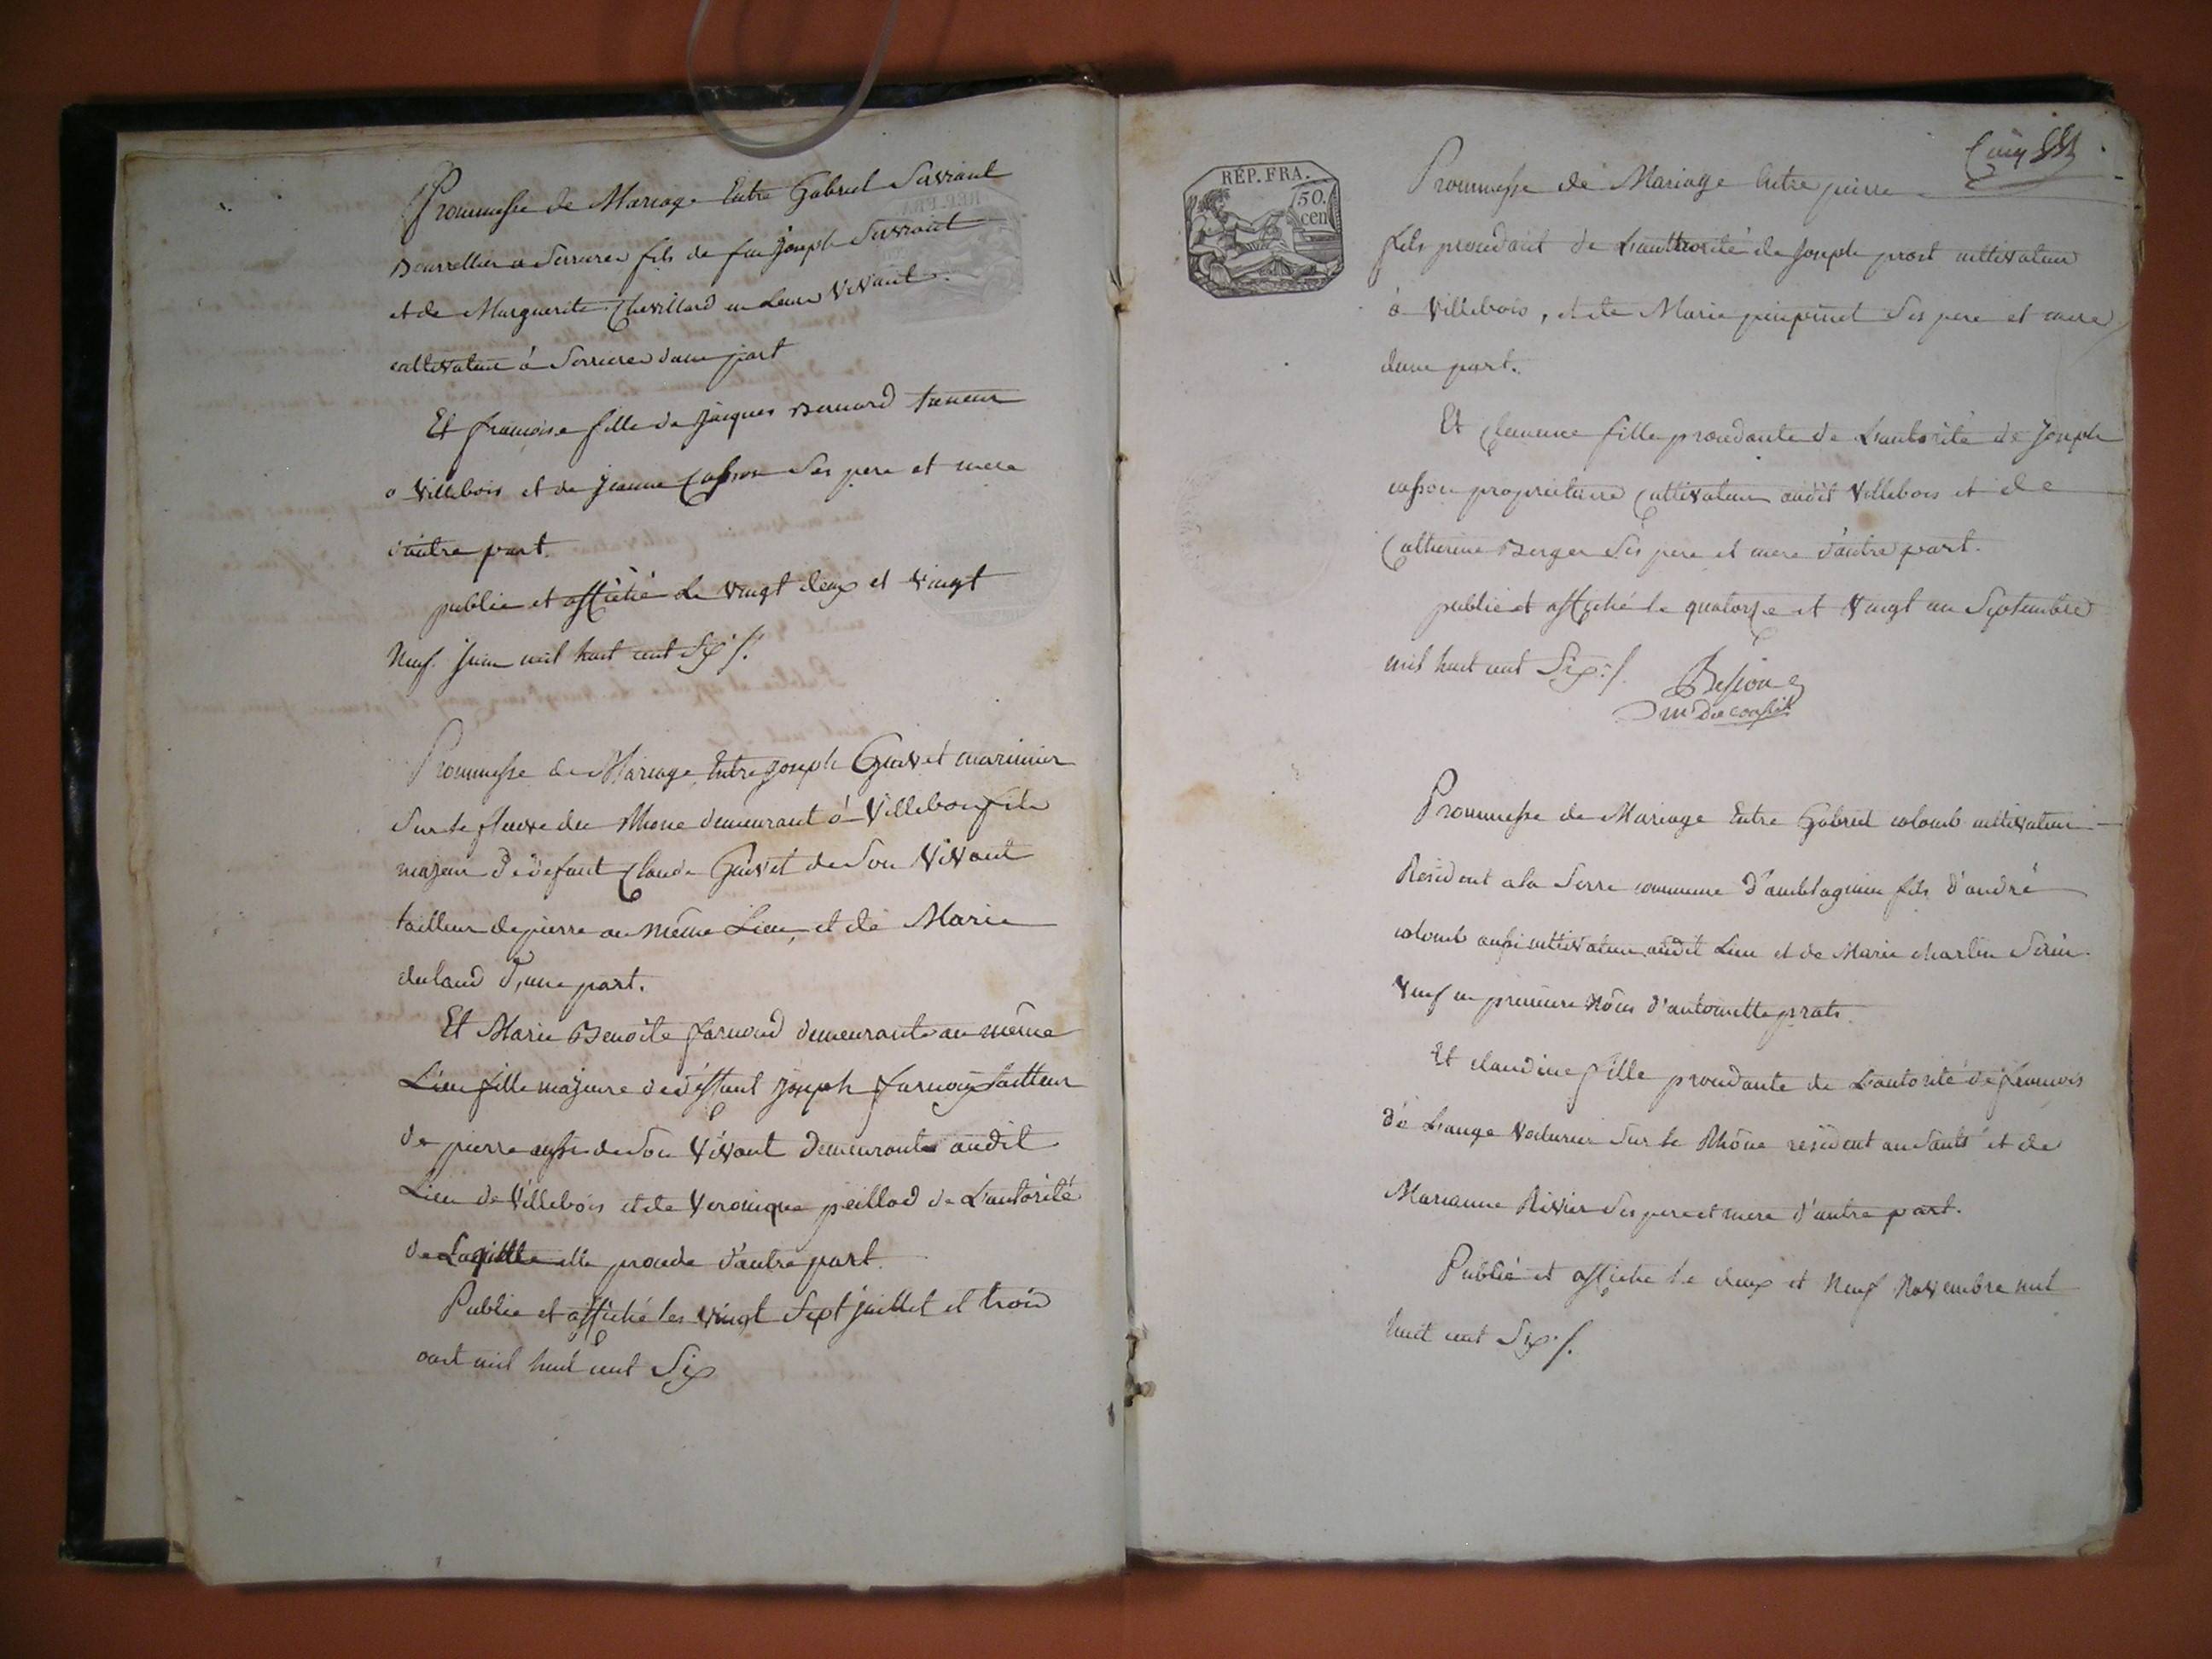 Prommesse de Mariage Entre Gabriel Servant
Bourrellier a Serrieres fils de feu Joseph Servant
et de Marguerite Chevillard en Leur Vivant
cultivateur à Serrieres d'une part
Et françoise fille de Jacques Bernard taneur
a Villebois et de Jeanne Casson Ses pere et mere
d'autre part.
publié et affiché Le vingt deux et vingt
Neuf Juin mil huit cent Six /.
Prommesse de Mariage Entre Joseph Grivet marinier
Sur le fleuve du Rhone demeurant à Villebois fils
majeur de defunt Claude Grivet de Son Vivant
tailleur de pierre au même Lieu, et de Marie
d'une part.
Et Marie Benoite farnoud demeurante au même
Lieu fille majeure de déffunt Joseph farnoux tailleur
de pierre aussi de Son Vivant demeurant audit
Lieu de Villebois et de Veronique peillod de L'autorité
de Laquelle elle procede d'autre part.
Publié et affiché les vingt Sept juillet et trois
aout mil huit cent Six
REP. FRA.
50.
cen
Cinq
Prommesse de Mariage Entre pierre
fils procedant de L'autthorité de Joseph prost cultivateur
à Villebois, et de Marie Ses pere et mere
d'une part.
Et Clemence fille procedante de L'autorité de Joseph
casson proprietaire Cultivateur audit Villebois et de
Catherine Berger Ses pere et mere d'autre part.
publié et affiché le quatorze et Vingt un Septembre
mil huit cent Six /.
Prommesse de Mariage Entre Gabriel colomb cultivateur
Resident a la Serre commune d'amblagnieu fils d'andré
colomb aussi cultivateur audit Lieu et de Marie
Veuf en premiere Nôces d'antoinette prats
Et claudine fille procedante de L'autorité de françois
de L'ange Voiturier Sur le Rhône résident au Sault et de
Marianne Rivier Ses pere et mere d'autre part.
Publié et affiché le deux et Neuf Novembre mil
huit cent Six /.